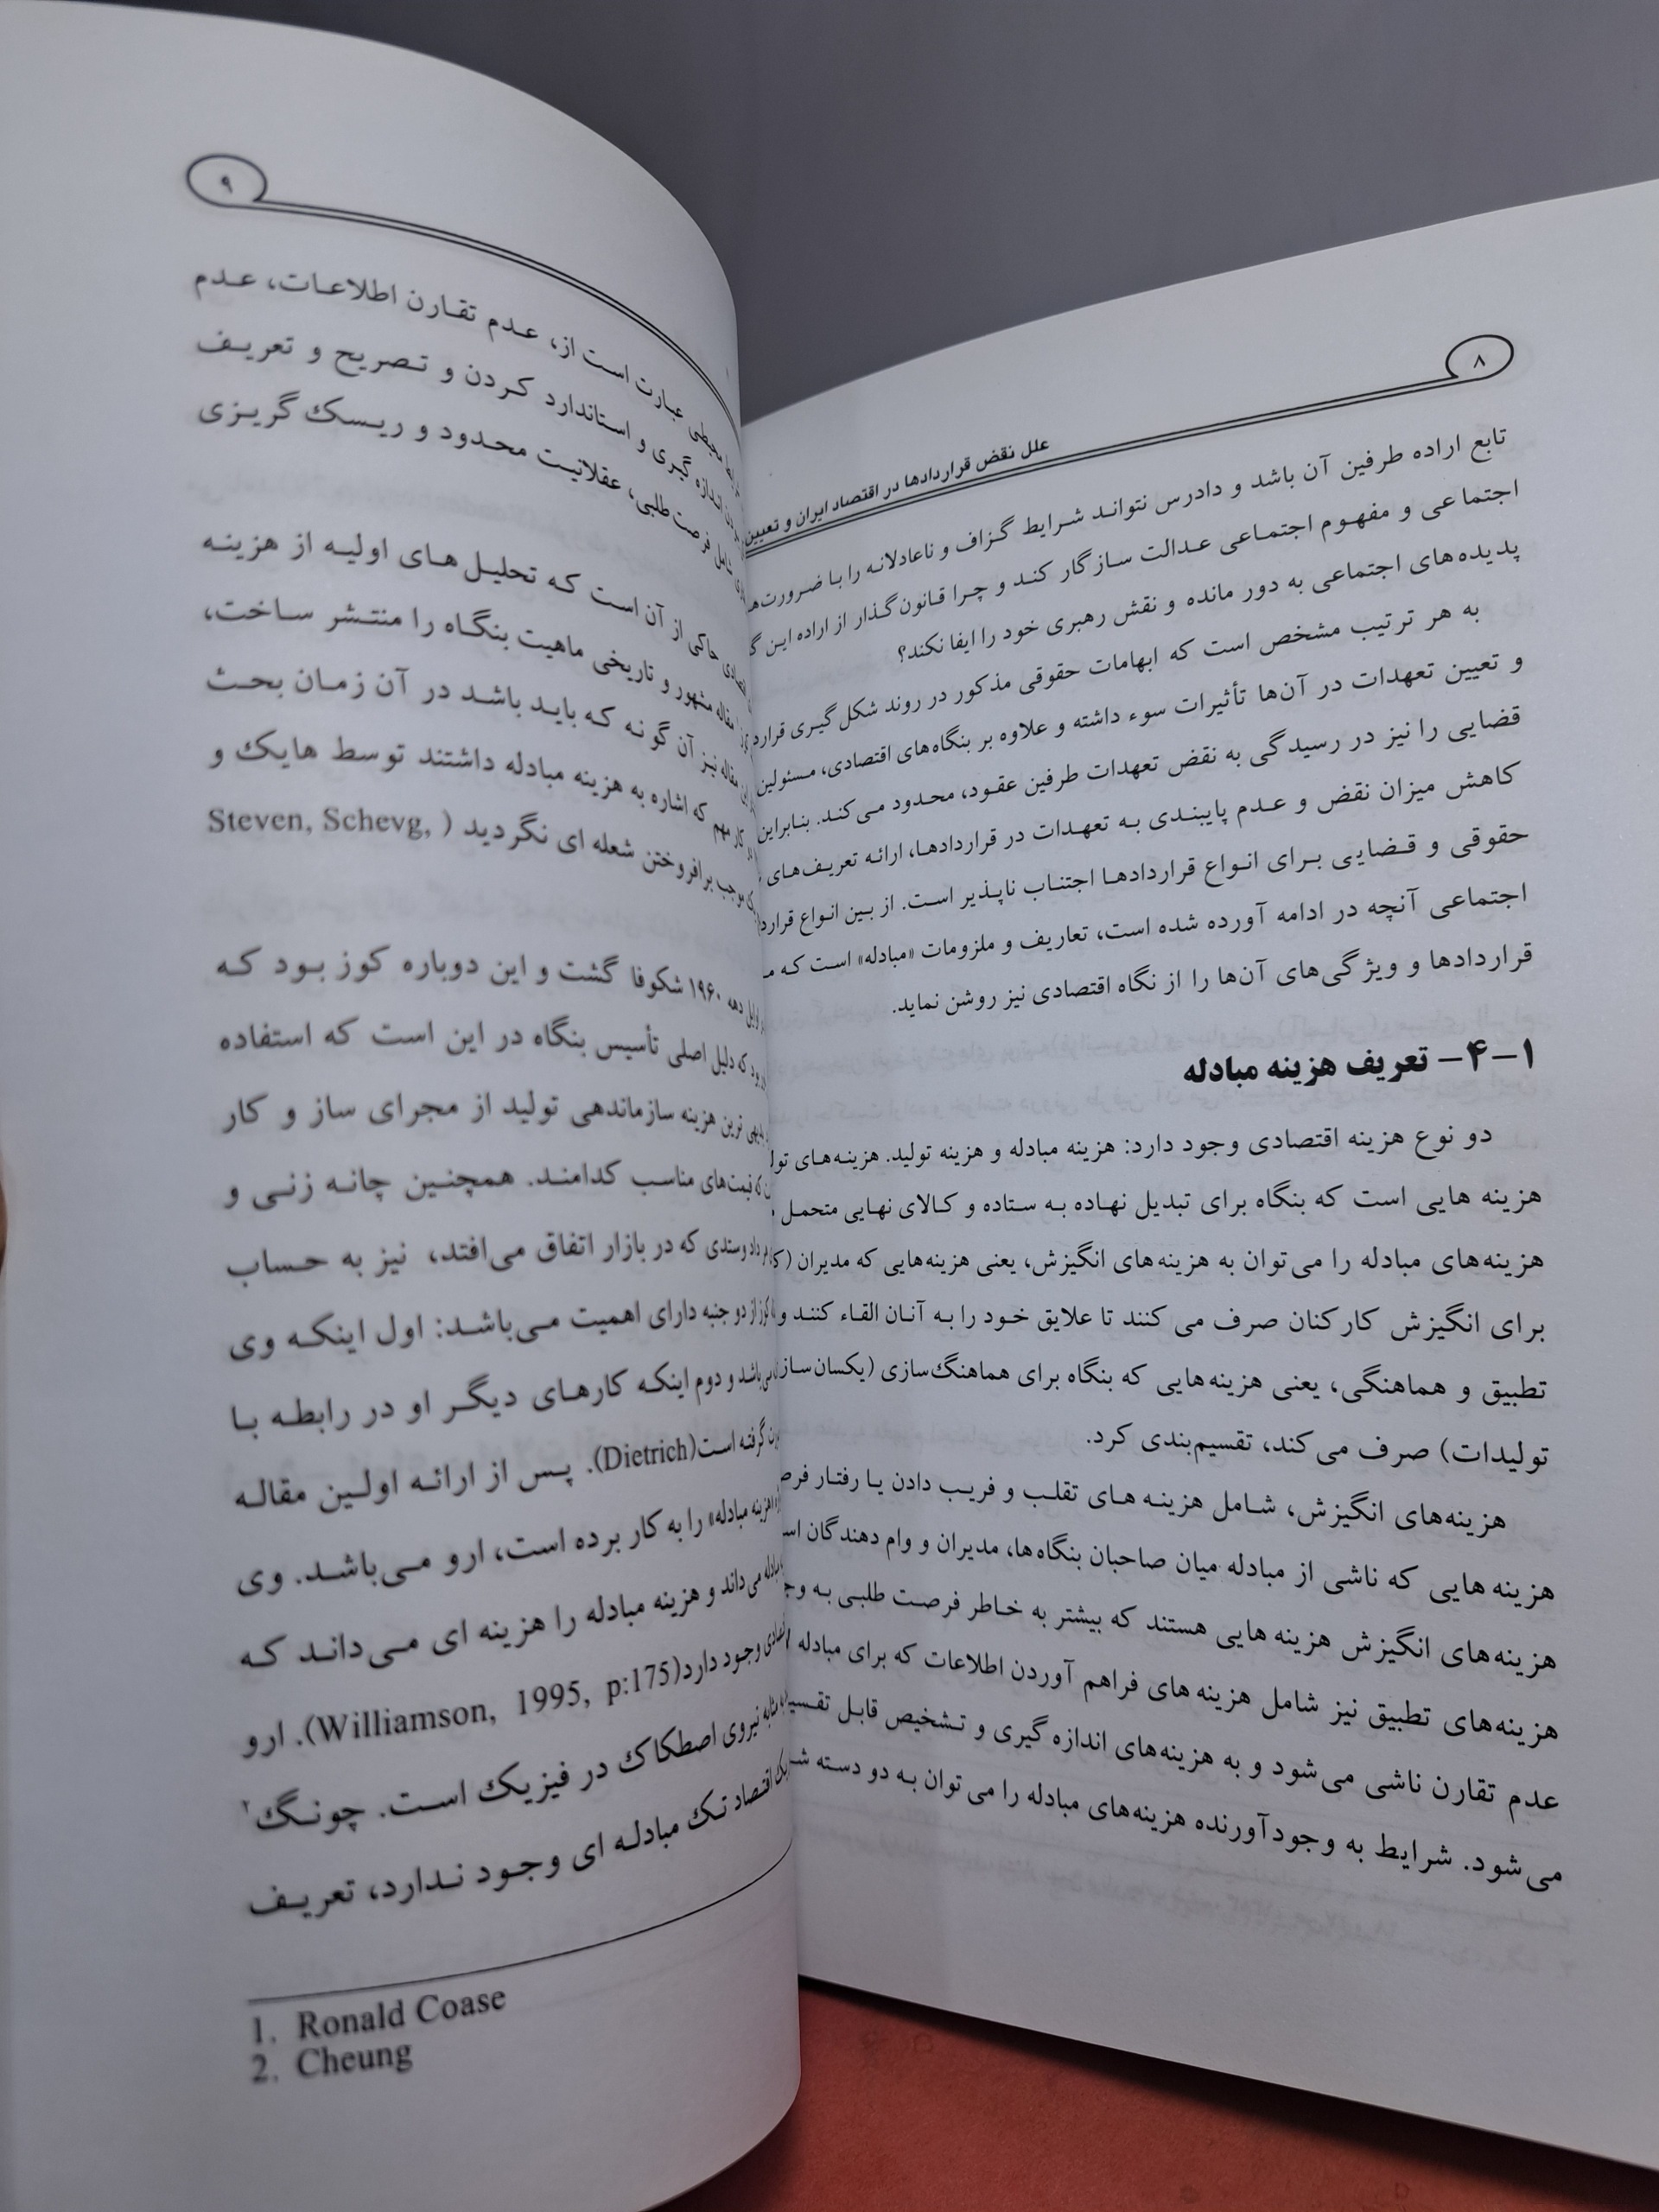 ۸
علل نقض قراردادها در اقتصاد ایران و تعیین
تابع اراده طرفین آن باشد و دادرس نتواند شرایط گزاف و ناعادلانه را با
اجتماعی و مفهوم اجتماعی عدالت سازگار کند و چرا قانون‌گذار از اراده این
پدیده‌های اجتماعی به دور مانده و نقش رهبری خود را ایفا نکند؟
به هر ترتیب مشخص است که ابهامات حقوقی مذکور در روند شکل‌گیری
و تعیین تعهدات در آن‌ها تأثیرات سوء داشته و علاوه بر بنگاه‌های اقتصادی، مسئولین
قضایی را نیز در رسیدگی به نقض تعهدات طرفین عقود، محدود می‌کند. بنابراین
کاهش میزان نقض و عدم پایبندی به تعهدات در قراردادها، ارائه تعریف‌های
حقوقی و قضایی برای انواع قراردادها اجتناب ناپذیر است. از بین انواع
اجتماعی آنچه در ادامه آورده شده است، تعاریف و ملزومات «مبادله» است که
قراردادها و ویژگی‌های آن‌ها را از نگاه اقتصادی نیز روشن نماید.
۱-۴- تعریف هزینه مبادله
دو نوع هزینه اقتصادی وجود دارد: هزینه مبادله و هزینه تولید. هزینه‌های
هزینه هایی است که بنگاه برای تبدیل نهاده به ستاده و کالای نهایی متحمل
هزینه‌های مبادله را می‌توان به هزینه‌های انگیزش، یعنی هزینه‌هایی که مدیران
برای انگیزش کارکنان صرف می کنند تا علایق خود را به آنان القاء کنند و
تطبیق و هماهنگی، یعنی هزینه‌هایی که بنگاه برای هماهنگ‌سازی
تولیدات) صرف می‌کند، تقسیم‌بندی کرد.
هزینه‌های انگیزش، شامل هزینه های تقلب و فریب دادن یا رفتار
هزینه هایی که ناشی از مبادله میان صاحبان بنگاه‌ها، مدیران و وام دهندگان
هزینه‌های انگیزش هزینه هایی هستند که بیشتر به خاطر فرصت طلبی به
هزینه‌های تطبیق نیز شامل هزینه های فراهم آوردن اطلاعات که برای مبادله
عدم تقارن ناشی می‌شود و به هزینه‌های اندازه گیری و تشخیص قابل
می‌شود. شرایط به وجودآورنده هزینه‌های مبادله را می‌توان به دو دسته
۹
محیطی عبارت است از، عدم تقارن اطلاعات، عدم
اندازه گیری و استاندارد کردن و تصریح و تعریف
شامل فرصت طلبی، عقلانیت محدود و ریسک گریزی
حاکی از آن است که تحلیل های اولیه از هزینه
مقاله مشهور و تاریخی ماهیت بنگاه را منتشر ساخت،
این مقاله نیز آن گونه که باید باشد در آن زمان بحث
کار مهم که اشاره به هزینه مبادله داشتند توسط هایک و
موجب برافروختن شعله ای نگردید ( Steven, Schevg,
دهه ۱۹۶۰ شکوفا گشت و این دوباره کوز بود که
که دلیل اصلی تأسیس بنگاه در این است که استفاده
ترین هزینه سازماندهی تولید از مجرای ساز و کار
که قیمت‌های مناسب کدامند. همچنین چانه زنی و
داد وستدی که در بازار اتفاق می‌افتد، نیز به حساب
کوز از دو جنبه دارای اهمیت می‌باشد: اول اینکه وی
می‌باشد و دوم اینکه کارهای دیگر او در رابطه با
گرفته است(Dietrich). پس از ارائه اولین مقاله
«هزینه مبادله» را به کار برده است، ارو می‌باشد. وی
مبادله می‌داند و هزینه مبادله را هزینه ای می‌داند که
وجود دارد(Williamson, 1995, p:175). ارو
مثابه نیروی اصطکاک در فیزیک است. چونگ۲
اقتصاد تک مبادله ای وجود ندارد، تعریف
1. Ronald Coase
2. Cheung